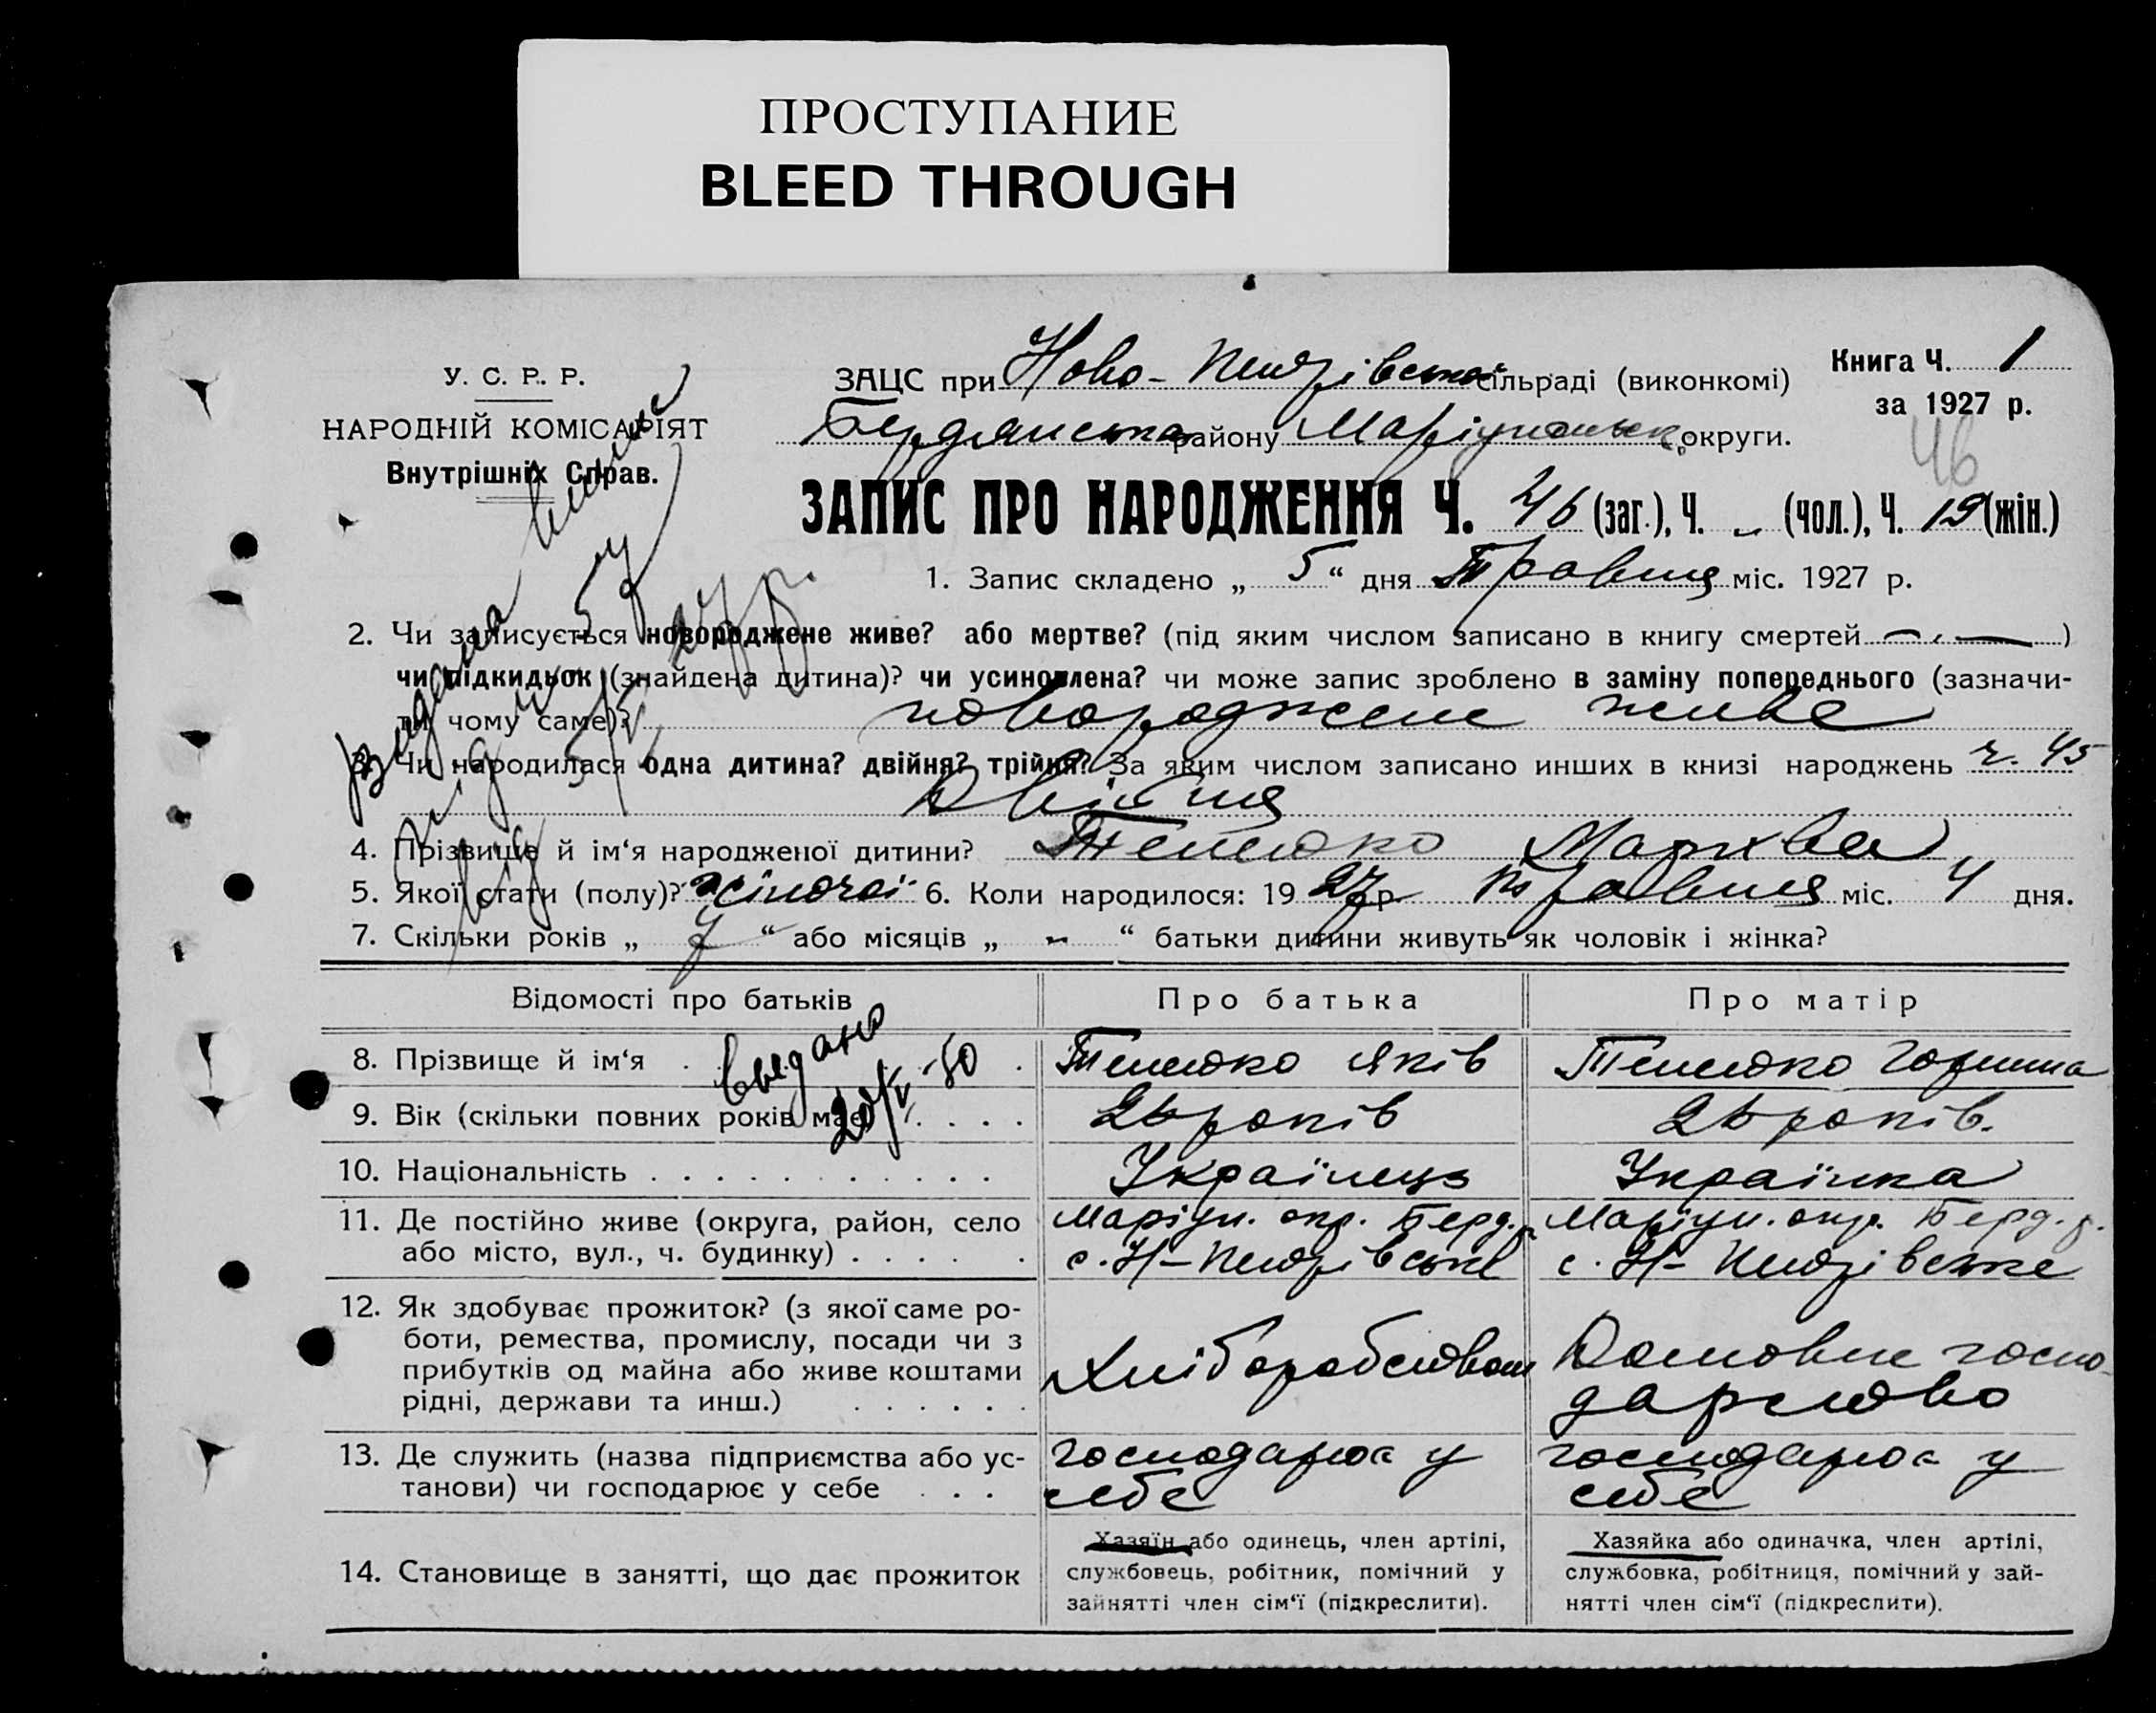 ПРОСТУПАНИЕ
BLEED THROUGH
У. С. Р. Р.
НАРОДНІЙ КОМІСАРІЯТ
Внутрішніх Справ.
ЗАЦС при Ново- сільраді (виконкомі)
Бердянська району Маріупольськ. округи.
Книга Ч. 1
за 1927 р.
46
ЗАПИС ПРО НАРОДЖЕННЯ Ч. 46 (заг.), Ч. „ (чол.), Ч. 19 (жін.)
1. Запис складено „ 5 “ дня Травня міс. 1927 р.
2. Чи записується новороджене живе? або мертве? (під яким числом записано в книгу смертей — „ — )
чи підкидьок (знайдена дитина)? чи усиновлена? чи може запис зроблено в заміну попереднього (зазначи-
ти чому саме)? новороджене живе
3. Чи народилася одна дитина? двійня? трійня? За яким числом записано инших в книзі народжень ч. 45
Двійня
4. Прізвище й ім‘я народженої дитини?
5. Якої стати (полу)? жіночої 6. Коли народилося: 19 27 р. Травня міс. 4 дня.
7. Скільки років „ 7 “ або місяців „ - “ батьки дитини живуть як чоловік і жінка?
видано
20/V-50
Відомості про батьків
Про батька
Про матір
8. Прізвище й ім‘я . . . Яків
9. Вік (скільки повних років має) . . . . 26 років 26 років.
10. Національність . . . . . . . . . . . Українець Українка
11. Де постійно живе (округа, район, село
або місто, вул., ч. будинку) . . . . .
Маріуп. окр. Берд. р.
с. Н-
Маріуп. окр. Берд. р.
с. Н-
12. Як здобуває прожиток? (з якої саме ро-
боти, ремества, промислу, посади чи з
прибутків од майна або живе коштами
рідні, держави та инш.) . . . . . .
Хліборобством
Домовне госпо-
дарство
13. Де служить (назва підприємства або ус-
танови) чи господарює у себе . . .
господарює у
себе
господарює у
себе
14. Становище в занятті, що дає прожиток
Хазяїн або одинець, член артілі,
службовець, робітник, помічний у
зайнятті член сім‘ї (підкреслити).
Хазяйка або одиначка, член артілі,
службовка, робітниця, помічний у зай-
нятті член сім‘ї (підкреслити).